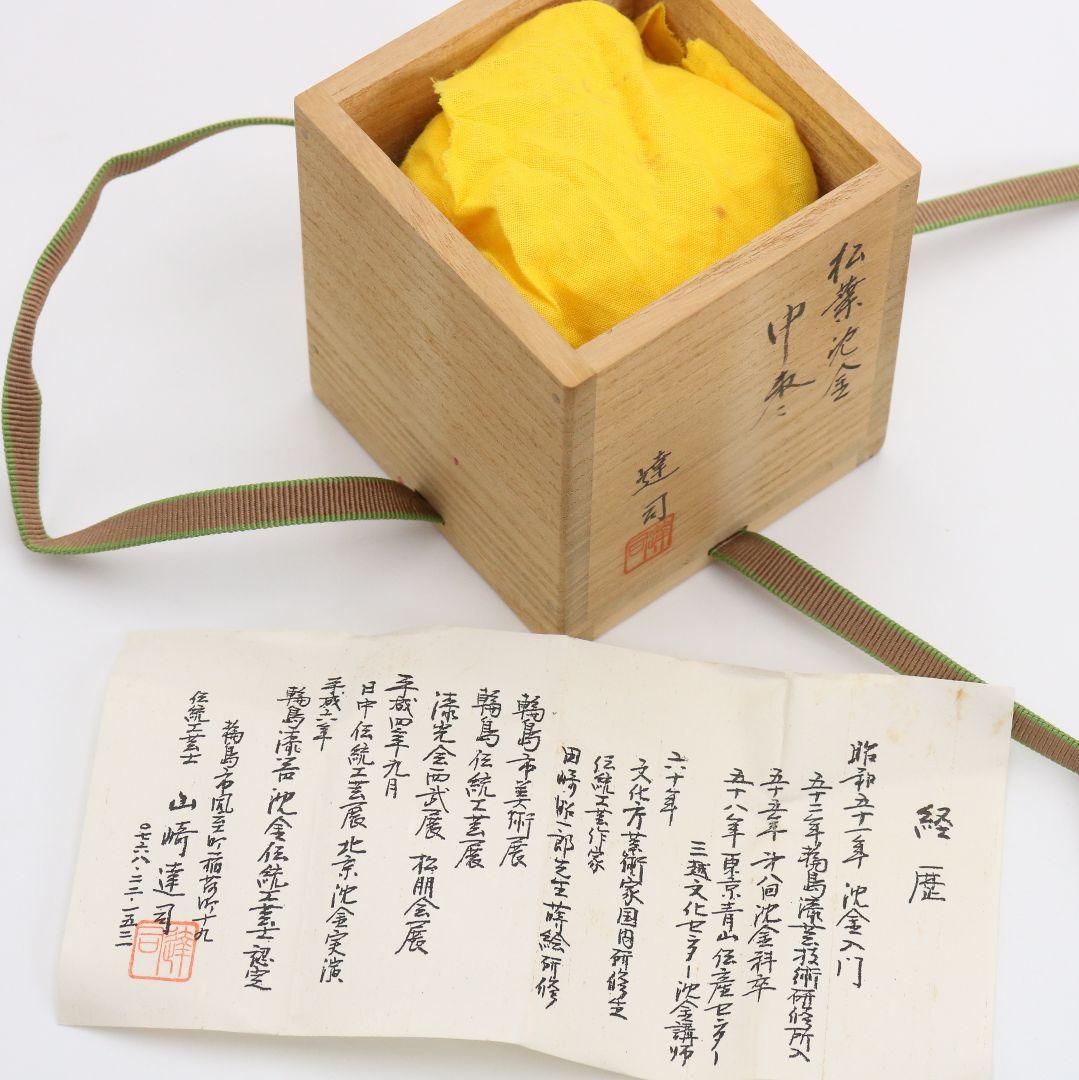 松葉沈金
中棗
達司
達司
経歴
昭和五十一年 沈金入門
五十二年輪島漆芸技術研修所入
五十五年 第八回沈金科卒
五十八年東京青山伝産センター
三越文化センター沈金講師
六十年
文化庁芸術家国内研修生
伝統工芸作家
田崎昭一郎先生蒔絵研修
輪島市美術展
輪島伝統工芸展
漆光会西武展 松朋会展
平成四年九月
日中伝統工芸展 北京沈金実演
平成六年
輪島漆器沈金伝統工芸士認定
輪島市鳳至町稲荷町十九
伝統工芸士 山崎達司
達司